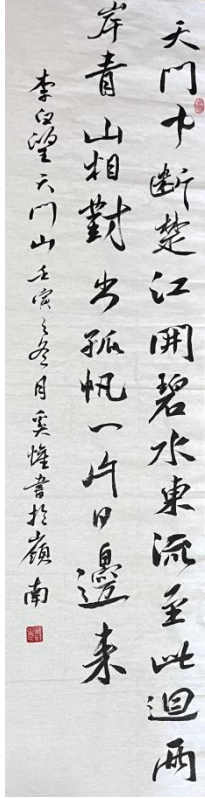 天門中斷楚江開碧水東流至此迴兩
岸青山相對出孤帆一片日邊来
李白望天門山壬寅之冬月奚惟書於嶺南